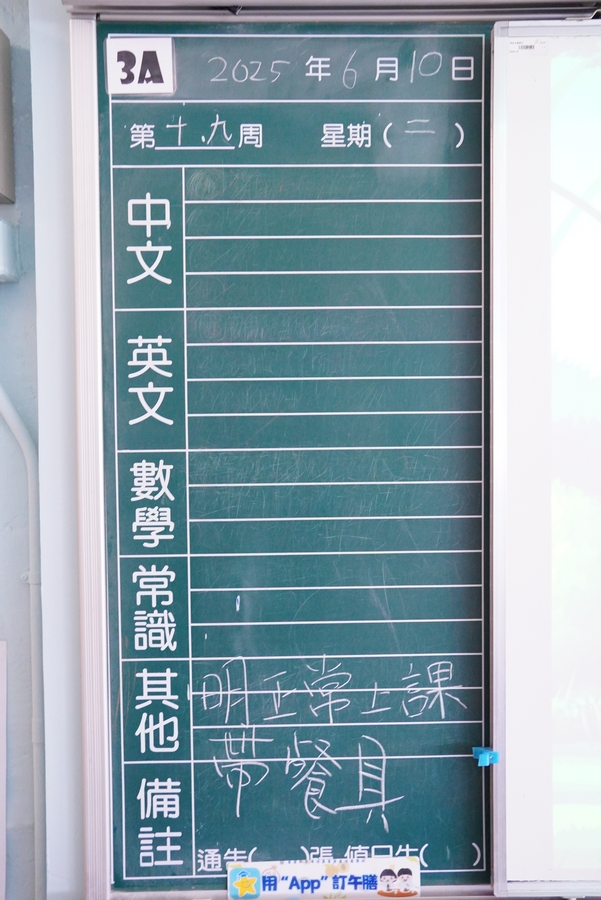 3A 2025 年 6 月 10 日
第十九周 星期（二）
中文
英文
數學
常識
其他 明正常上課
帶餐具
備註
通告( )張 值日生( )
用“App”訂午膳